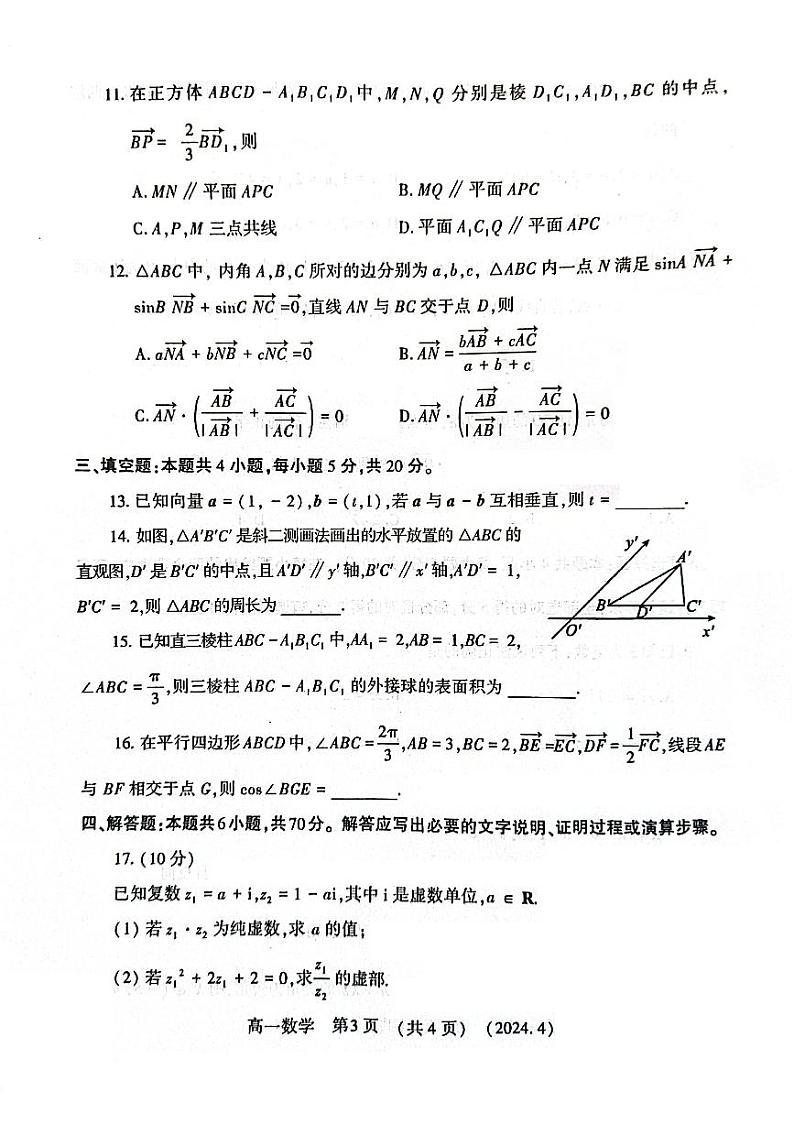 11. 在正方体 ABCD - A₁B₁C₁D₁中,M,N,Q 分别是棱 D₁C₁,A₁D₁,BC 的中点,
$\overrightarrow{BP}=\frac{2}{3}\overrightarrow{BD_1}$,则
A. MN ∥ 平面 APC B. MQ ∥ 平面 APC
C. A,P,M 三点共线 D. 平面 A₁C₁Q ∥ 平面 APC
12. △ABC 中, 内角 A,B,C 所对的边分别为 a,b,c, △ABC 内一点 N 满足 $\sin A\overrightarrow{NA}$ +
$\sin B\overrightarrow{NB}+\sin C\overrightarrow{NC}=\vec{0}$,直线 AN 与 BC 交于点 D,则
A. $a\overrightarrow{NA}+b\overrightarrow{NB}+c\overrightarrow{NC}=\vec{0}$ B. $\overrightarrow{AN}=\frac{b\overrightarrow{AB}+c\overrightarrow{AC}}{a+b+c}$
C. $\overrightarrow{AN}\cdot\left(\frac{\overrightarrow{AB}}{|\overrightarrow{AB}|}+\frac{\overrightarrow{AC}}{|\overrightarrow{AC}|}\right)=0$ D. $\overrightarrow{AN}\cdot\left(\frac{\overrightarrow{AB}}{|\overrightarrow{AB}|}-\frac{\overrightarrow{AC}}{|\overrightarrow{AC}|}\right)=0$
三、填空题:本题共 4 小题,每小题 5 分,共 20 分。
13. 已知向量 a = (1, - 2),b = (t,1),若 a 与 a - b 互相垂直,则 t = ______.
14. 如图,△A'B'C' 是斜二测画法画出的水平放置的 △ABC 的
直观图,D' 是 B'C' 的中点,且 A'D' ∥ y' 轴,B'C' ∥ x' 轴,A'D' = 1,
B'C' = 2,则 △ABC 的周长为 ______.
y'
A'
B'
D'
C'
O'
x'
15. 已知直三棱柱 ABC - A₁B₁C₁ 中,AA₁ = 2,AB = 1,BC = 2,
∠ABC = $\frac{\pi}{3}$,则三棱柱 ABC - A₁B₁C₁ 的外接球的表面积为 ______.
16. 在平行四边形 ABCD 中, ∠ABC = $\frac{2\pi}{3}$,AB = 3,BC = 2,$\overrightarrow{BE}=\overrightarrow{EC}$,$\overrightarrow{DF}=\frac{1}{2}\overrightarrow{FC}$,线段 AE
与 BF 相交于点 G,则 cos∠BGE = ______.
四、解答题:本题共 6 小题,共 70 分。解答应写出必要的文字说明、证明过程或演算步骤。
17. (10 分)
已知复数 z₁ = a + i,z₂ = 1 - ai,其中 i 是虚数单位,a ∈ R.
(1) 若 z₁ · z₂ 为纯虚数,求 a 的值;
(2) 若 z₁² + 2z₁ + 2 = 0,求 $\frac{z_1}{z_2}$ 的虚部.
高一数学 第 3 页 (共 4 页) (2024. 4)